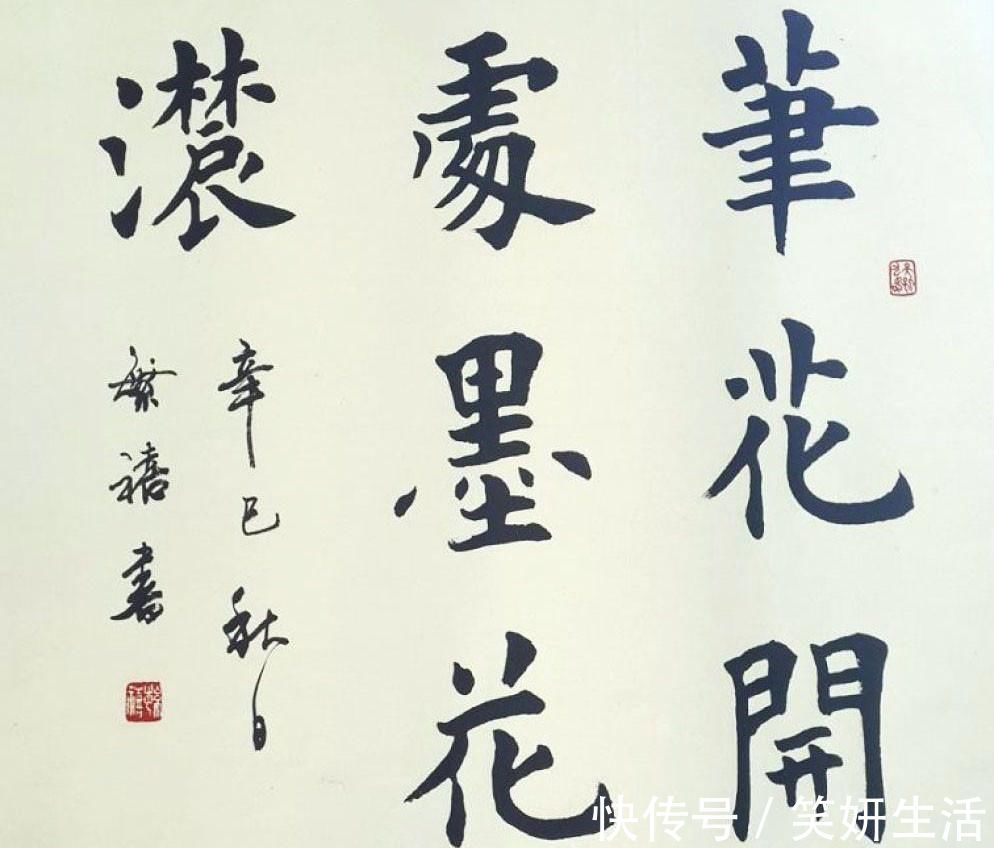 筆花開
處墨花
濃
辛巳秋日
繁禧書
快传号 / 笑妍生活